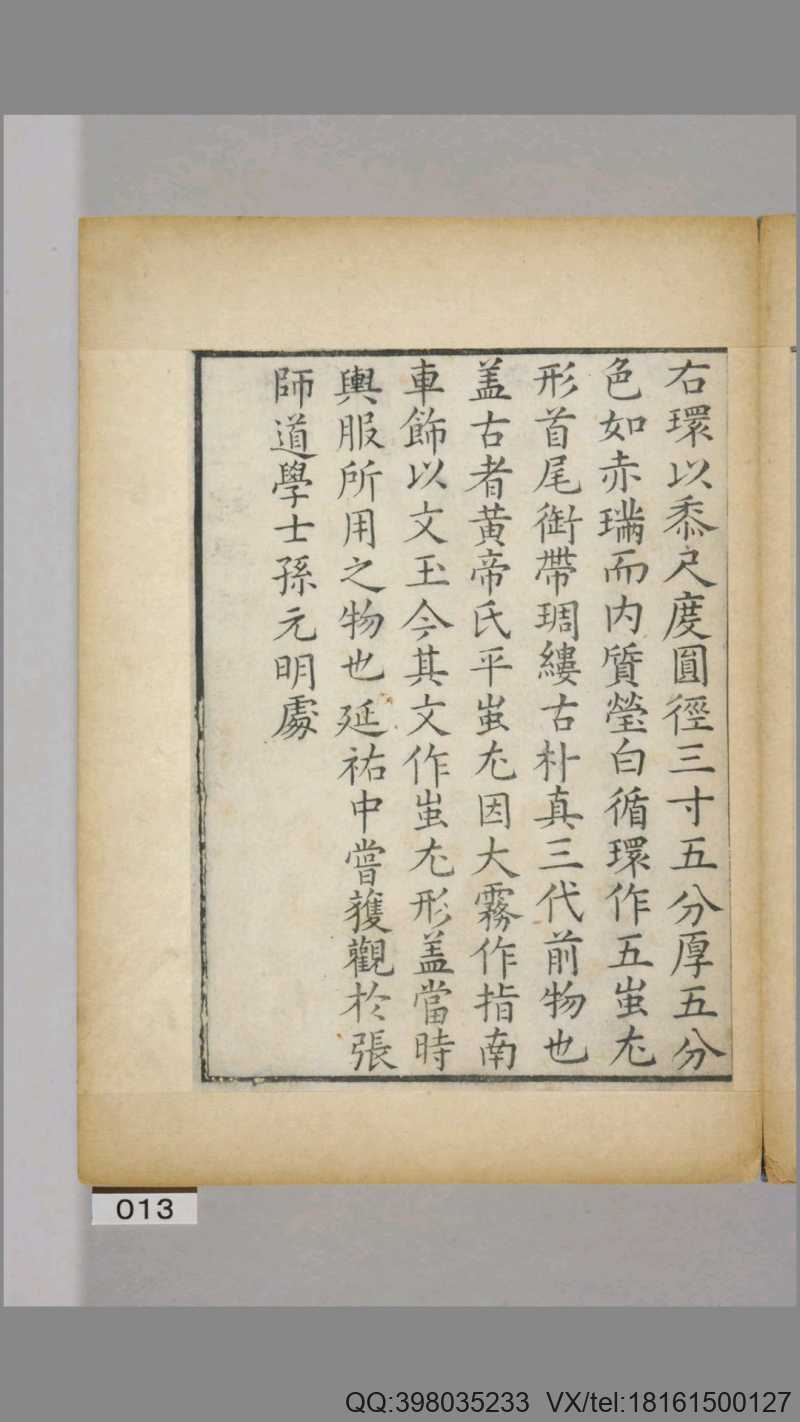 右環以黍尺度圓徑三寸五分厚五分
色如赤璊而内質瑩白循環作五蚩尤
形首尾銜帶琱縷古朴真三代前物也
盖古者黄帝氏平蚩尤因大霧作指南
車飾以文玉今其文作蚩尤形盖當時
輿服所用之物也延祐中嘗獲觀於張
師道學士孫元明處
013
QQ:398035233 VX/tel:18161500127